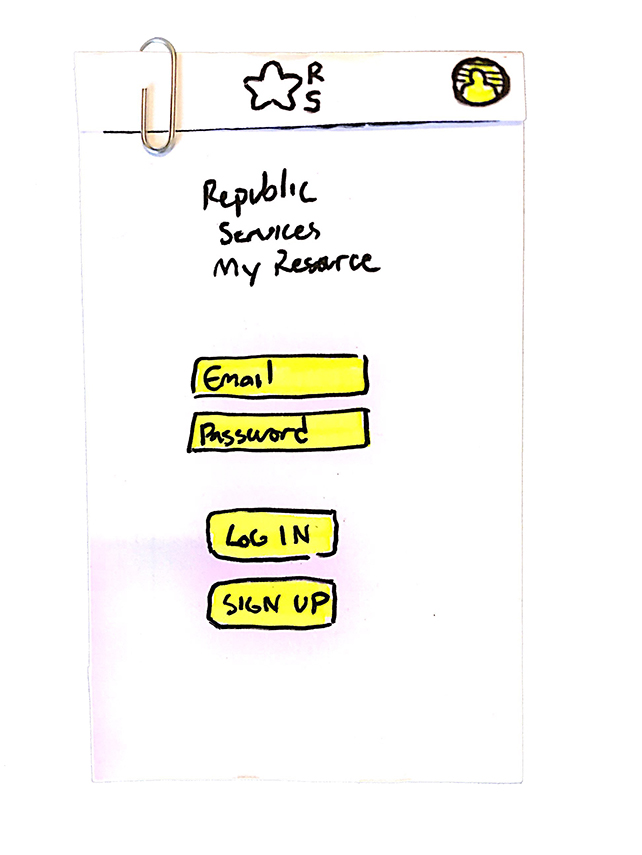 R
S
Republic
Services
My Resource
Email
Password
LOG IN
SIGN UP